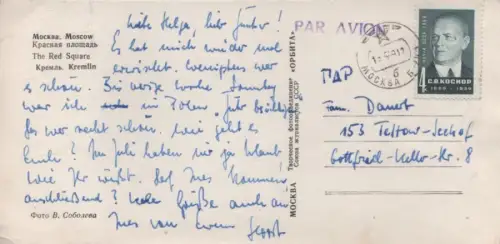 Москва. Moscow
Красная площадь
The Red Square
Кремль. Kremlin
Liebe Helga, lieber Günter!
Es hat mich wieder mal
erwischt. Wenigstens war
es schön. Bis vorige Woche Sonntag
war ich in Polen
Das war recht schön. Wie geht es
Euch? Im Juli haben wir ja Urlaub
wie Ihr wißt.
anschließend? Viele Grüße auch an
Ines von Eurem Horst
Фото В. Соболева
МОСКВА
Творческое фотообъединение «ОРБИТА»
Союза журналистов СССР
PAR AVION
МОСКВА
б
С.В.КОСИОР
1889 - 1939
4
ПАР
Fam. Danert
153 Teltow-Seehof
Gottfried-Keller-Str. 8